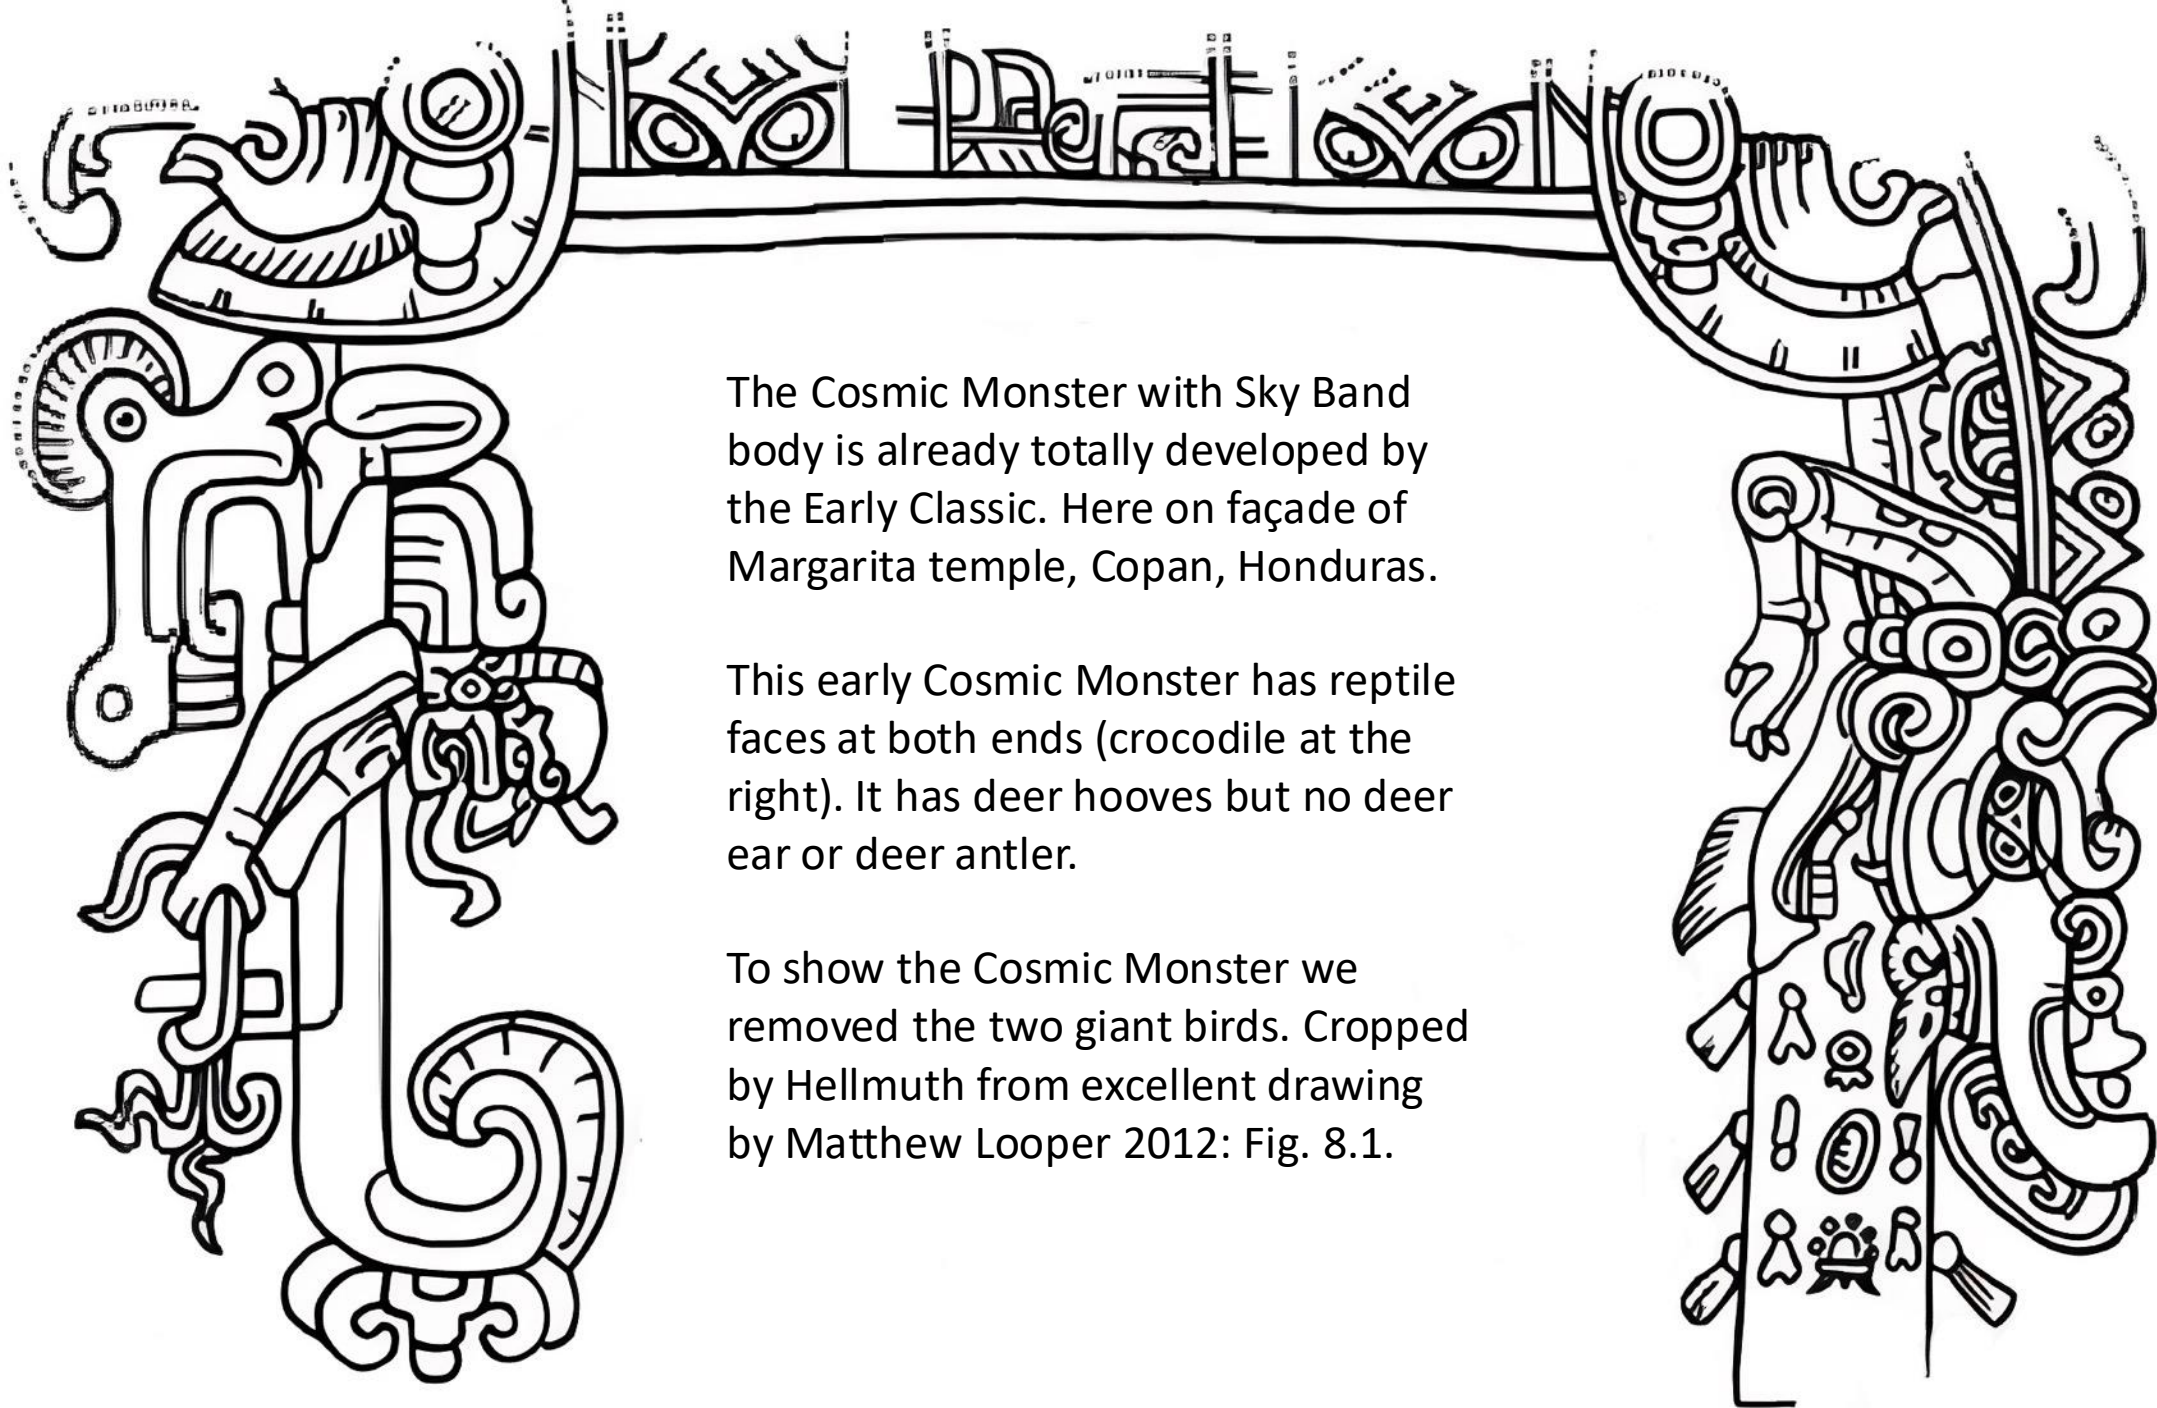 The Cosmic Monster with Sky Band
body is already totally developed by
the Early Classic. Here on façade of
Margarita temple, Copan, Honduras.
This early Cosmic Monster has reptile
faces at both ends (crocodile at the
right). It has deer hooves but no deer
ear or deer antler.
To show the Cosmic Monster we
removed the two giant birds. Cropped
by Hellmuth from excellent drawing
by Matthew Looper 2012: Fig. 8.1.